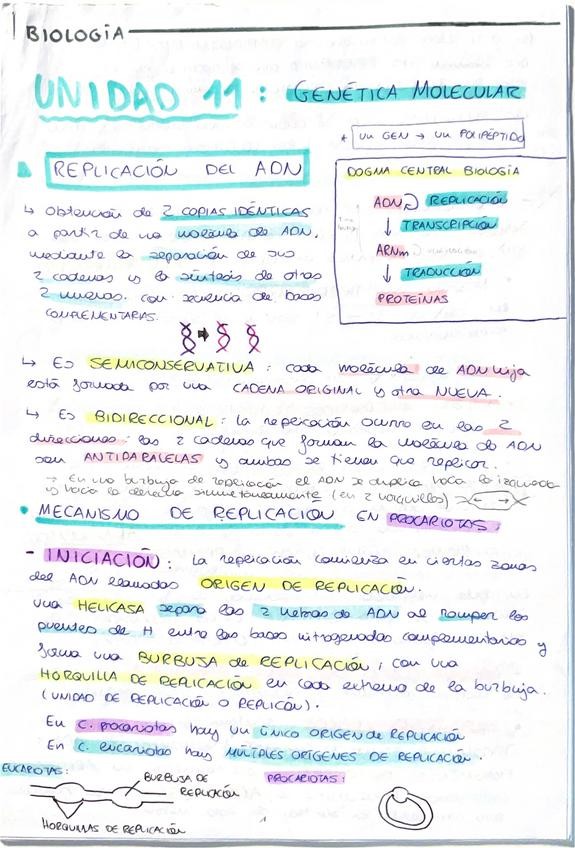 BIOLOGÍA
UNIDAD 11: GENÉTICA MOLECULAR
* un GEN → un POLIPÉPTIDO
REPLICACIÓN DEL ADN
DOGMA CENTRAL BIOLOGÍA
ADN REPLICACIÓN
↓ TRANSCRIPCIÓN
ARNm
↓ TRADUCCIÓN
PROTEÍNAS
↳ Obtención de 2 COPIAS IDÉNTICAS
a partir de una molécula de ADN,
mediante la separación de sus
2 cadenas y la síntesis de otras
2 nuevas, con secuencia de bases
COMPLEMENTARIAS.
↳ Es SEMICONSERVATIVA: cada molécula de ADN hija
está formada por una CADENA ORIGINAL y otra NUEVA.
↳ Es BIDIRECCIONAL: la replicación ocurre en las 2
direcciones: las 2 cadenas que forman la molécula de ADN
son ANTIPARALELAS y ambas se tienen que replicar.
→ En una burbuja de replicación el ADN se duplica hacia la izquierda
y hacia la derecha simultáneamente (en 2 horquillas)
• MECANISMO DE REPLICACIÓN EN PROCARIOTAS:
- INICIACIÓN: La replicación comienza en ciertas zonas
del ADN llamadas ORIGEN DE REPLICACIÓN.
una HELICASA separa las 2 hebras de ADN al romper los
puentes de H entre las bases nitrogenadas complementarias y
forma una BURBUJA de REPLICACIÓN, con una
HORQUILLA DE REPLICACIÓN en cada extremo de la burbuja.
(UNIDAD DE REPLICACIÓN O REPLICÓN).
En C. procariotas hay un ÚNICO ORIGEN DE REPLICACIÓN
En C. eucariotas hay MÚLTIPLES ORÍGENES DE REPLICACIÓN.
EUCARIOTAS:
BURBUJA DE
REPLICACIÓN
PROCARIOTAS:
HORQUILLAS DE REPLICACIÓN